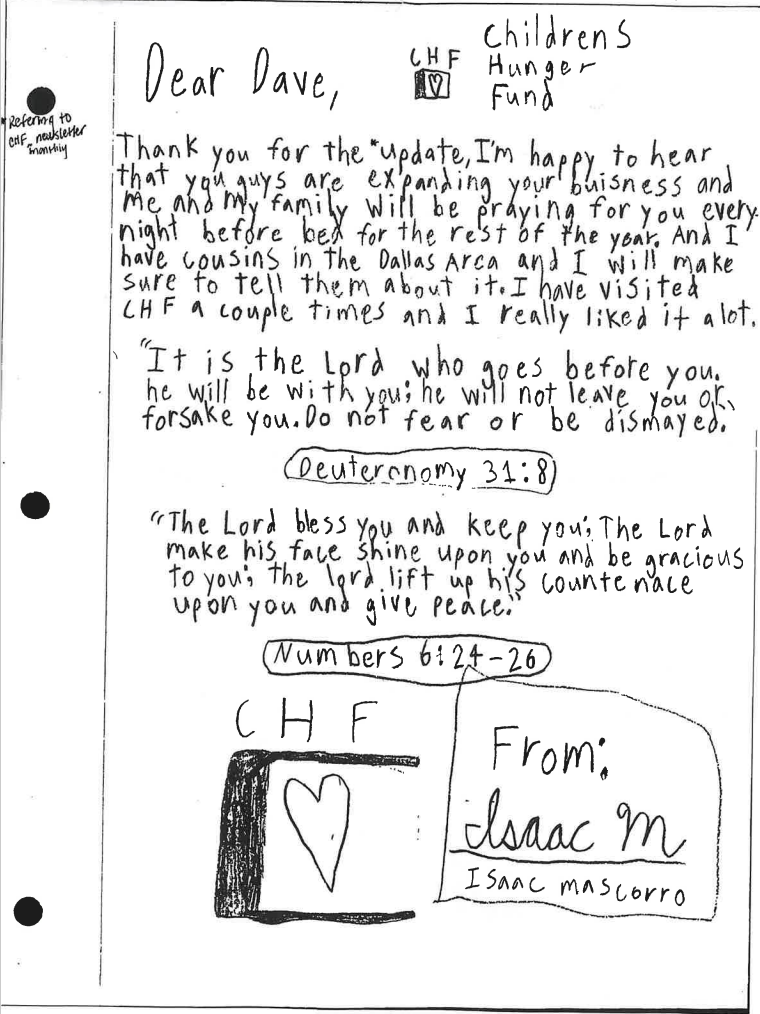 Dear Dave,
CHF
Childrens
Hunger
Fund
*Refering to
CHF newsletter
monthly
Thank you for the *update, I'm happy to hear
that you guys are expanding your buisness and
me and my family will be praying for you every
night before bed for the rest of the year. And I
have cousins in the Dallas Area and I will make
sure to tell them about it. I have visited
CHF a couple times and I really liked it alot.
"It is the Lord who goes before you.
he will be with you; he will not leave you or
forsake you. Do not fear or be dismayed."
Deuteronomy 31:8
"The Lord bless you and keep you; The Lord
make his face shine upon you and be gracious
to you; the lord lift up his countenace
upon you and give peace."
Numbers 6:24-26
CHF
From:
Isaac M
Isaac mascorro